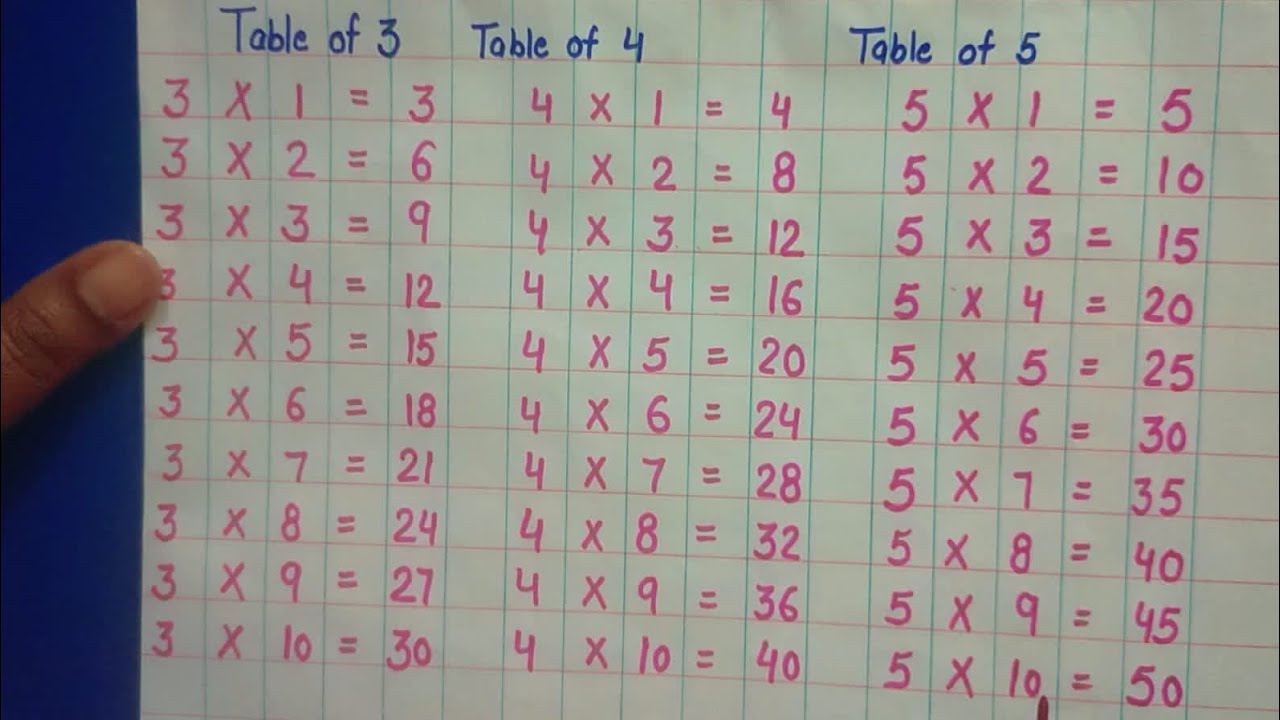 Table of 3 Table of 4 Table of 5
3 X 1 = 3 4 X 1 = 4 5 X 1 = 5
3 X 2 = 6 4 X 2 = 8 5 X 2 = 10
3 X 3 = 9 4 X 3 = 12 5 X 3 = 15
3 X 4 = 12 4 X 4 = 16 5 X 4 = 20
3 X 5 = 15 4 X 5 = 20 5 X 5 = 25
3 X 6 = 18 4 X 6 = 24 5 X 6 = 30
3 X 7 = 21 4 X 7 = 28 5 X 7 = 35
3 X 8 = 24 4 X 8 = 32 5 X 8 = 40
3 X 9 = 27 4 X 9 = 36 5 X 9 = 45
3 X 10 = 30 4 X 10 = 40 5 X 10 = 50